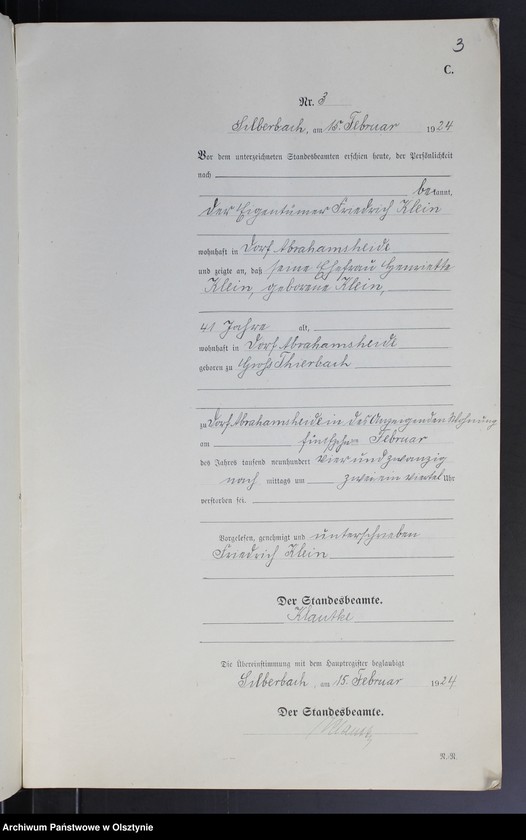 3
C.
Nr. 3
Silberbach, am 15. Februar 1924
Vor dem unterzeichneten Standesbeamten erschien heute, der Persönlichkeit
nach
bekannt,
der Eigentümer Friedrich Klein
wohnhaft in Dorf Abrahamsheide
und zeigte an, daß seine Ehefrau Henriette
Klein, geborene Klein,
41 Jahre alt,
wohnhaft in Dorf Abrahamsheide
geboren zu Groß Thierbach
zu Dorf Abrahamsheide in des Anzeigenden Wohnung
am fünfzehn Februar
des Jahres tausend neunhundert vier und zwanzig
nach mittags um zwei ein viertel Uhr
verstorben sei.
Vorgelesen, genehmigt und unterschrieben
Friedrich Klein
Der Standesbeamte.
Klautke
Die Übereinstimmung mit dem Hauptregister beglaubigt
Silberbach, am 15. Februar 1924
Der Standesbeamte.
N.-R.
Archiwum Państwowe w Olsztynie